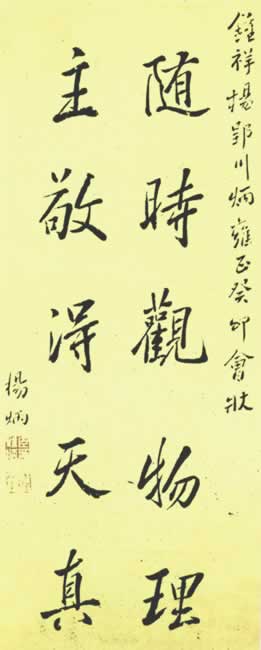 鍾祥楊郢川炳雍正癸卯會狀
随時觀物理
主敬得天真
楊炳